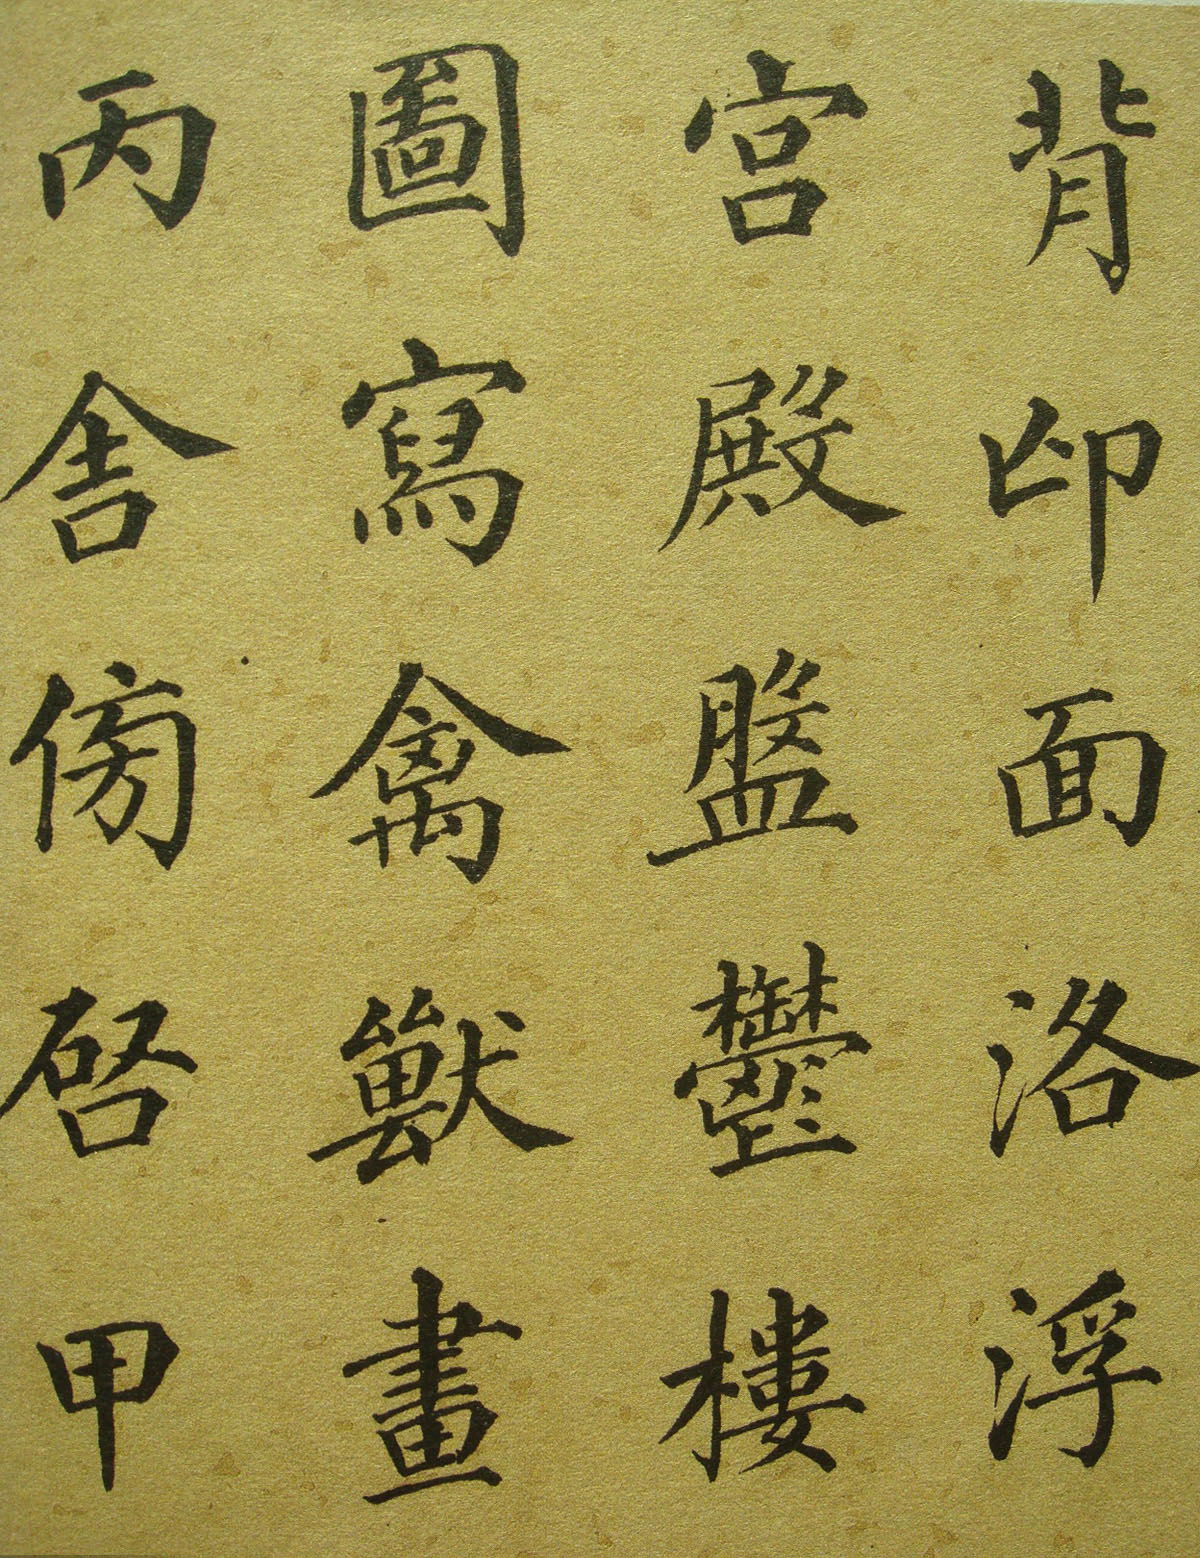 背邙面洛浮
宫殿盤鬱樓
圖寫禽獸畫
丙舍傍啓甲